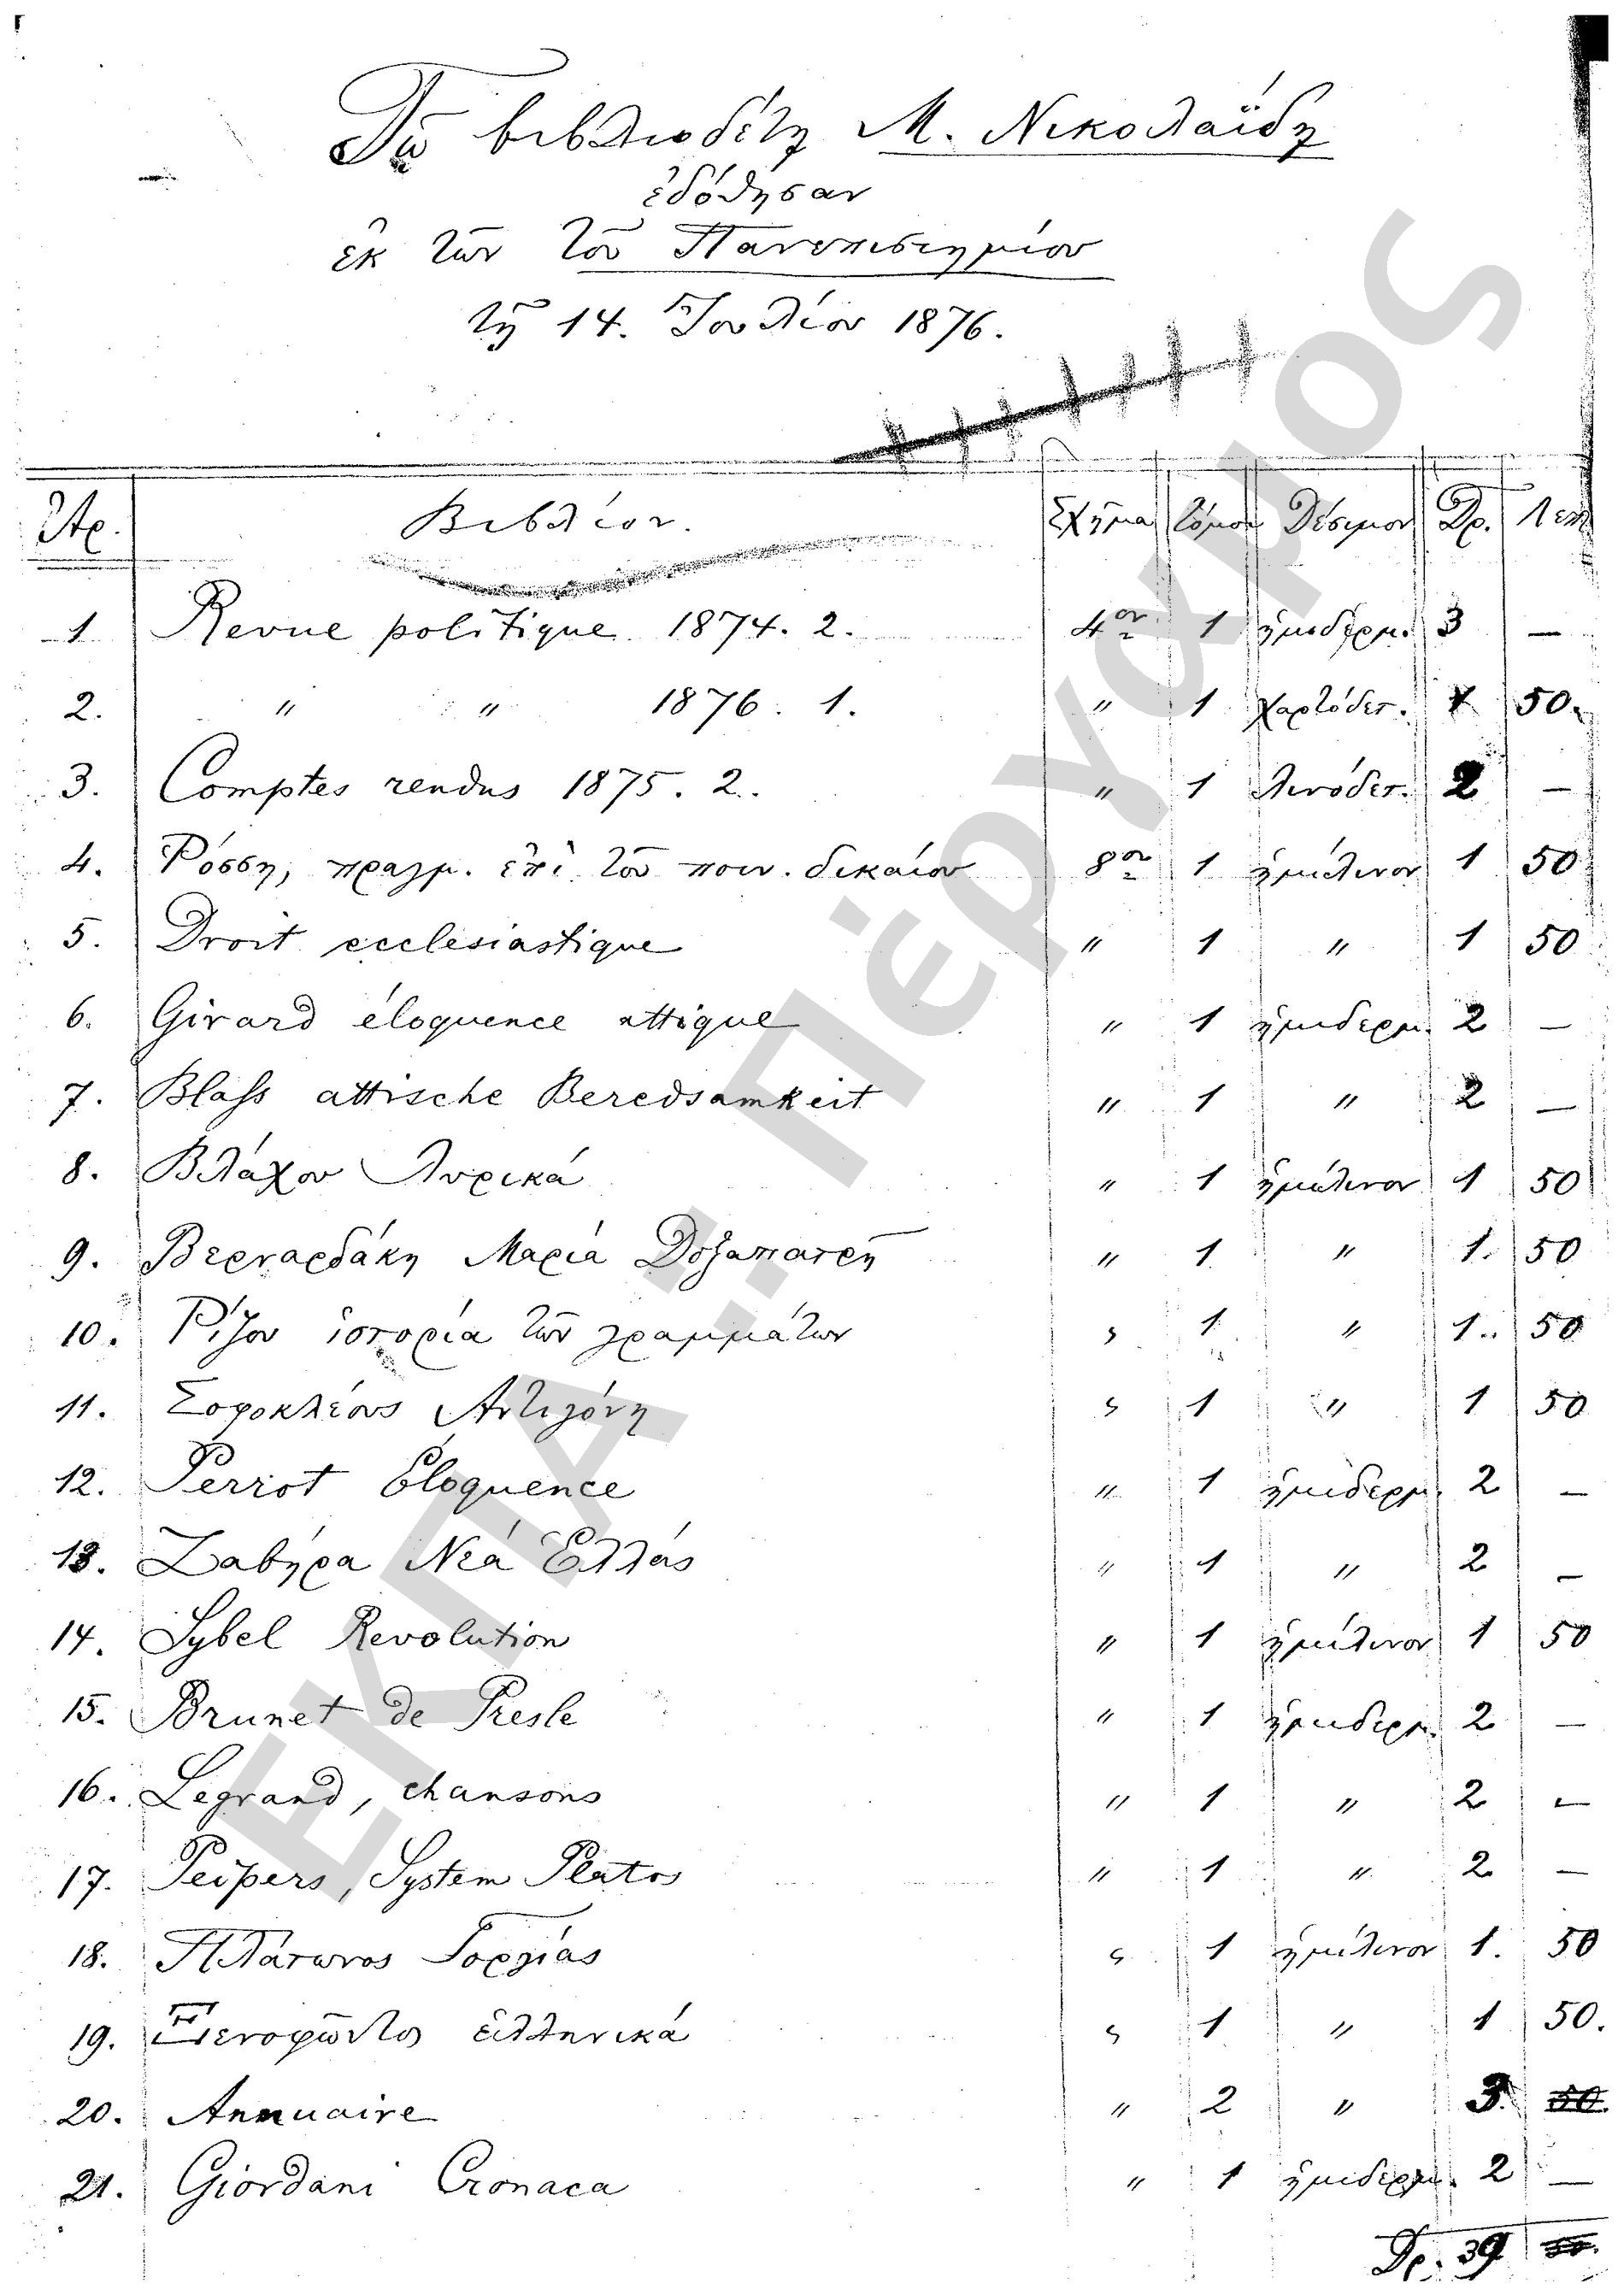 Τῷ βιβλιοδέτῃ Μ. Νικολαΐδῃ
ἐδόθησαν
ἐκ τῶν τοῦ Πανεπιστημίου
τῇ 14. Ἰουλίου 1876.
Ἀρ. Βιβλίον. Σχῆμα τόμοι Δέσιμον Δρ. Λεπ
1 Revue politique 1874. 2. 4ον 1 ἡμιδέρμ. 3 —
2. " " 1876. 1. " 1 χαρτόδετ. 50.
3. Comptes rendus 1875. 2. " 1 λινόδετ. 2 —
4. Ῥόσση, πραγμ. ἐπὶ τοῦ ποιν. δικαίου 8ον 1 ἡμίλινον 1 50
5. Droit ecclésiastique " 1 " 1 50
6. Girard éloquence attique " 1 ἡμιδερμ. 2 —
7. Blass attische Beredsamkeit " 1 " 2 —
8. Βλάχου Λυρικά " 1 ἡμίλινον 1 50
9. Βερναρδάκη Μαρία Δοξαπατρῆ " 1 " 1. 50
10. Ῥίζου ἱστορία τῶν γραμμάτων ς 1 " 1.. 50
11. Σοφοκλέους Ἀντιγόνη ς 1 " 1 50
12. Perrot Éloquence " 1 ἡμιδερμ. 2 —
13. Ζαβίρα Νέα Ἑλλάς " 1 " 2 —
14. Sybel Revolution " 1 ἡμίλινον 1 50
15. Brunet de Presle " 1 ἡμιδερμ. 2 —
16. Legrand, chansons " 1 " 2 —
17. Peipers, System Platos " 1 " 2 —
18. Πλάτωνος Γοργίας ς 1 ἡμίλινον 1. 50
19. Ξενοφῶντος ἑλληνικά ς 1 " 1 50.
20. Annuaire " 2 " 3. 50
21. Giordani Cronaca " 1 ἡμιδερμ. 2 —
Δρ. 39
ΕΚΠΑ: Πέργαμος